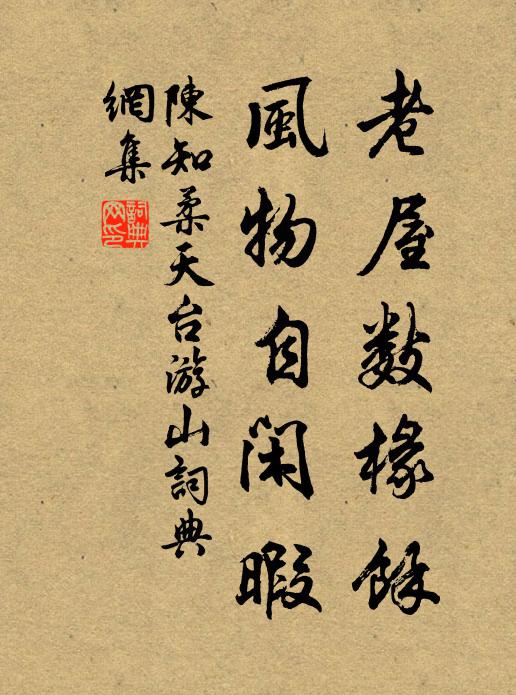 老屋數椽餘
風物自閑暇
陳知柔天台游山詞典
網集
詞典網印